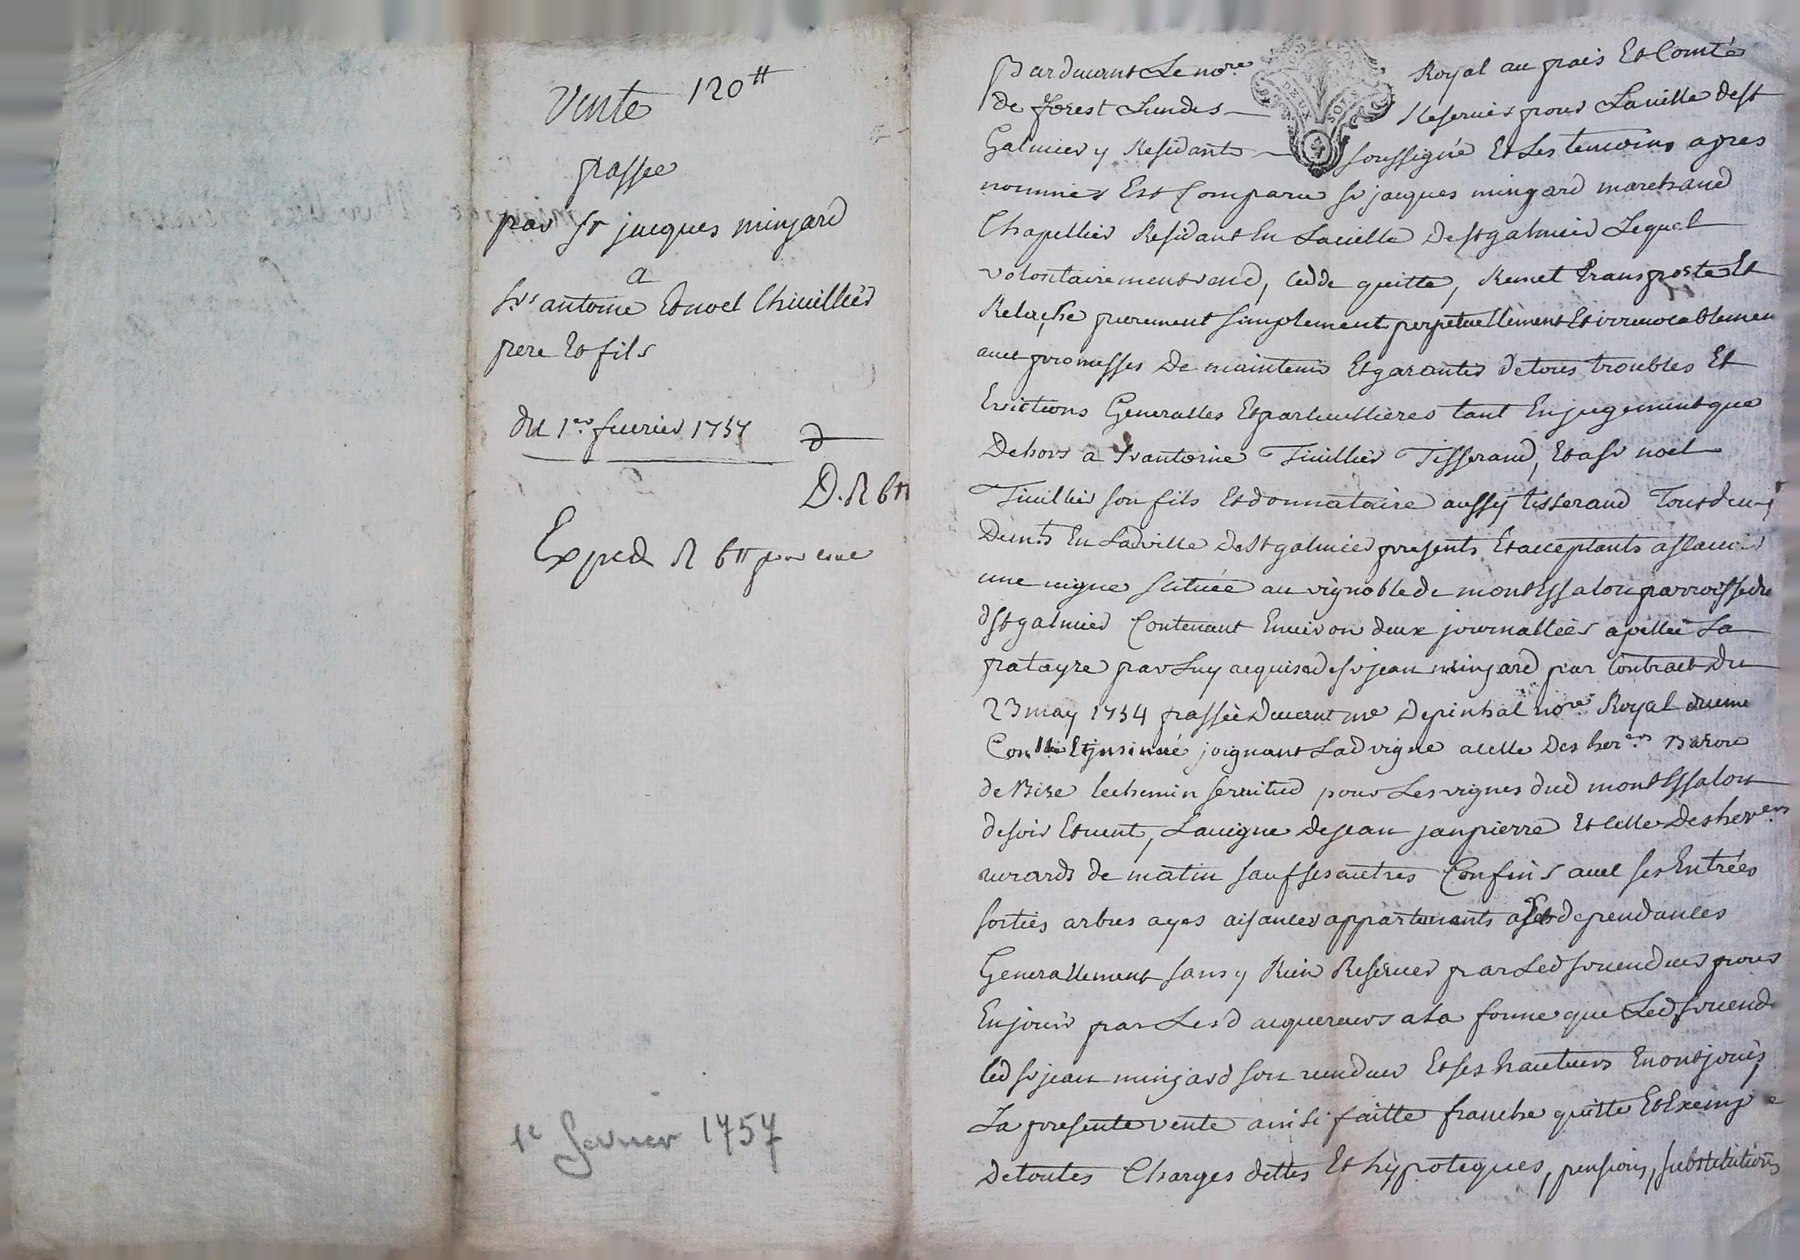 Vente 120ᵗᵗ
passee
par sr jacques minjard
a
srs antoine Et noel Thiuillier
pere Et fils
du 1er feurier 1757
D. R 6ᵗᵗ
Exped R 6ᵗᵗ
1e fevrier 1757
Pardeuant Le nore Royal au païs Et Comté
de forest Lun des Reserués pour La uille de st
Galmier y Residant soussigné Et Les temoins apres
nommés Est Comparu sr jacques minjard marchand
Chapellier Residant En La uille de st galmier Lequel
volontairement vend, cedde quitte, Remet transporte Et
Relache purement simplement perpetuellement Et irreuocablement
auec promesses De maintenir Et garantir de tous troubles Et
Euictions Generalles Et particullieres tant En jugement que
Dehors a sr antoine Tiuillier Tisserand, Et a sr noel
Tiuillier son fils Et donnataire aussy tisserand Tous deux
Demts En Lad ville de st galmier presents Et acceptants assauoir
une uigne scituée au vignoble de montEssalon parroisse du
d st galmier Contenant Enuiron deux journallées apellée La
patayre par Luy acquise de sr jean minjard par Contract du
23 may 1754 passée deuant me Depinhal nore Royal
Et jnsinué joignant Lad vigne a celle des hers Baron
de Bize le chemin seruitud pour Les vignes dud montEssalon
de soir Et uent, La uigne de jean janpierre Et celle Des hers
de matin sauf ses autres Confins auec ses Entrées
sorties arbres ayes aisances appartenants Et dependances
Generallement sans y Rien Reseruer par Led sr uendeur pour
En jouir par Lesd acquereurs a La forme que Led sr uend
Led sr jean minjard son uendeur Et ses hauteurs En ont jouis
La presente vente ainsi faitte franche quitte Et Exempte
De toutes Charges dettes Et hypoteques, pensions, substitutions